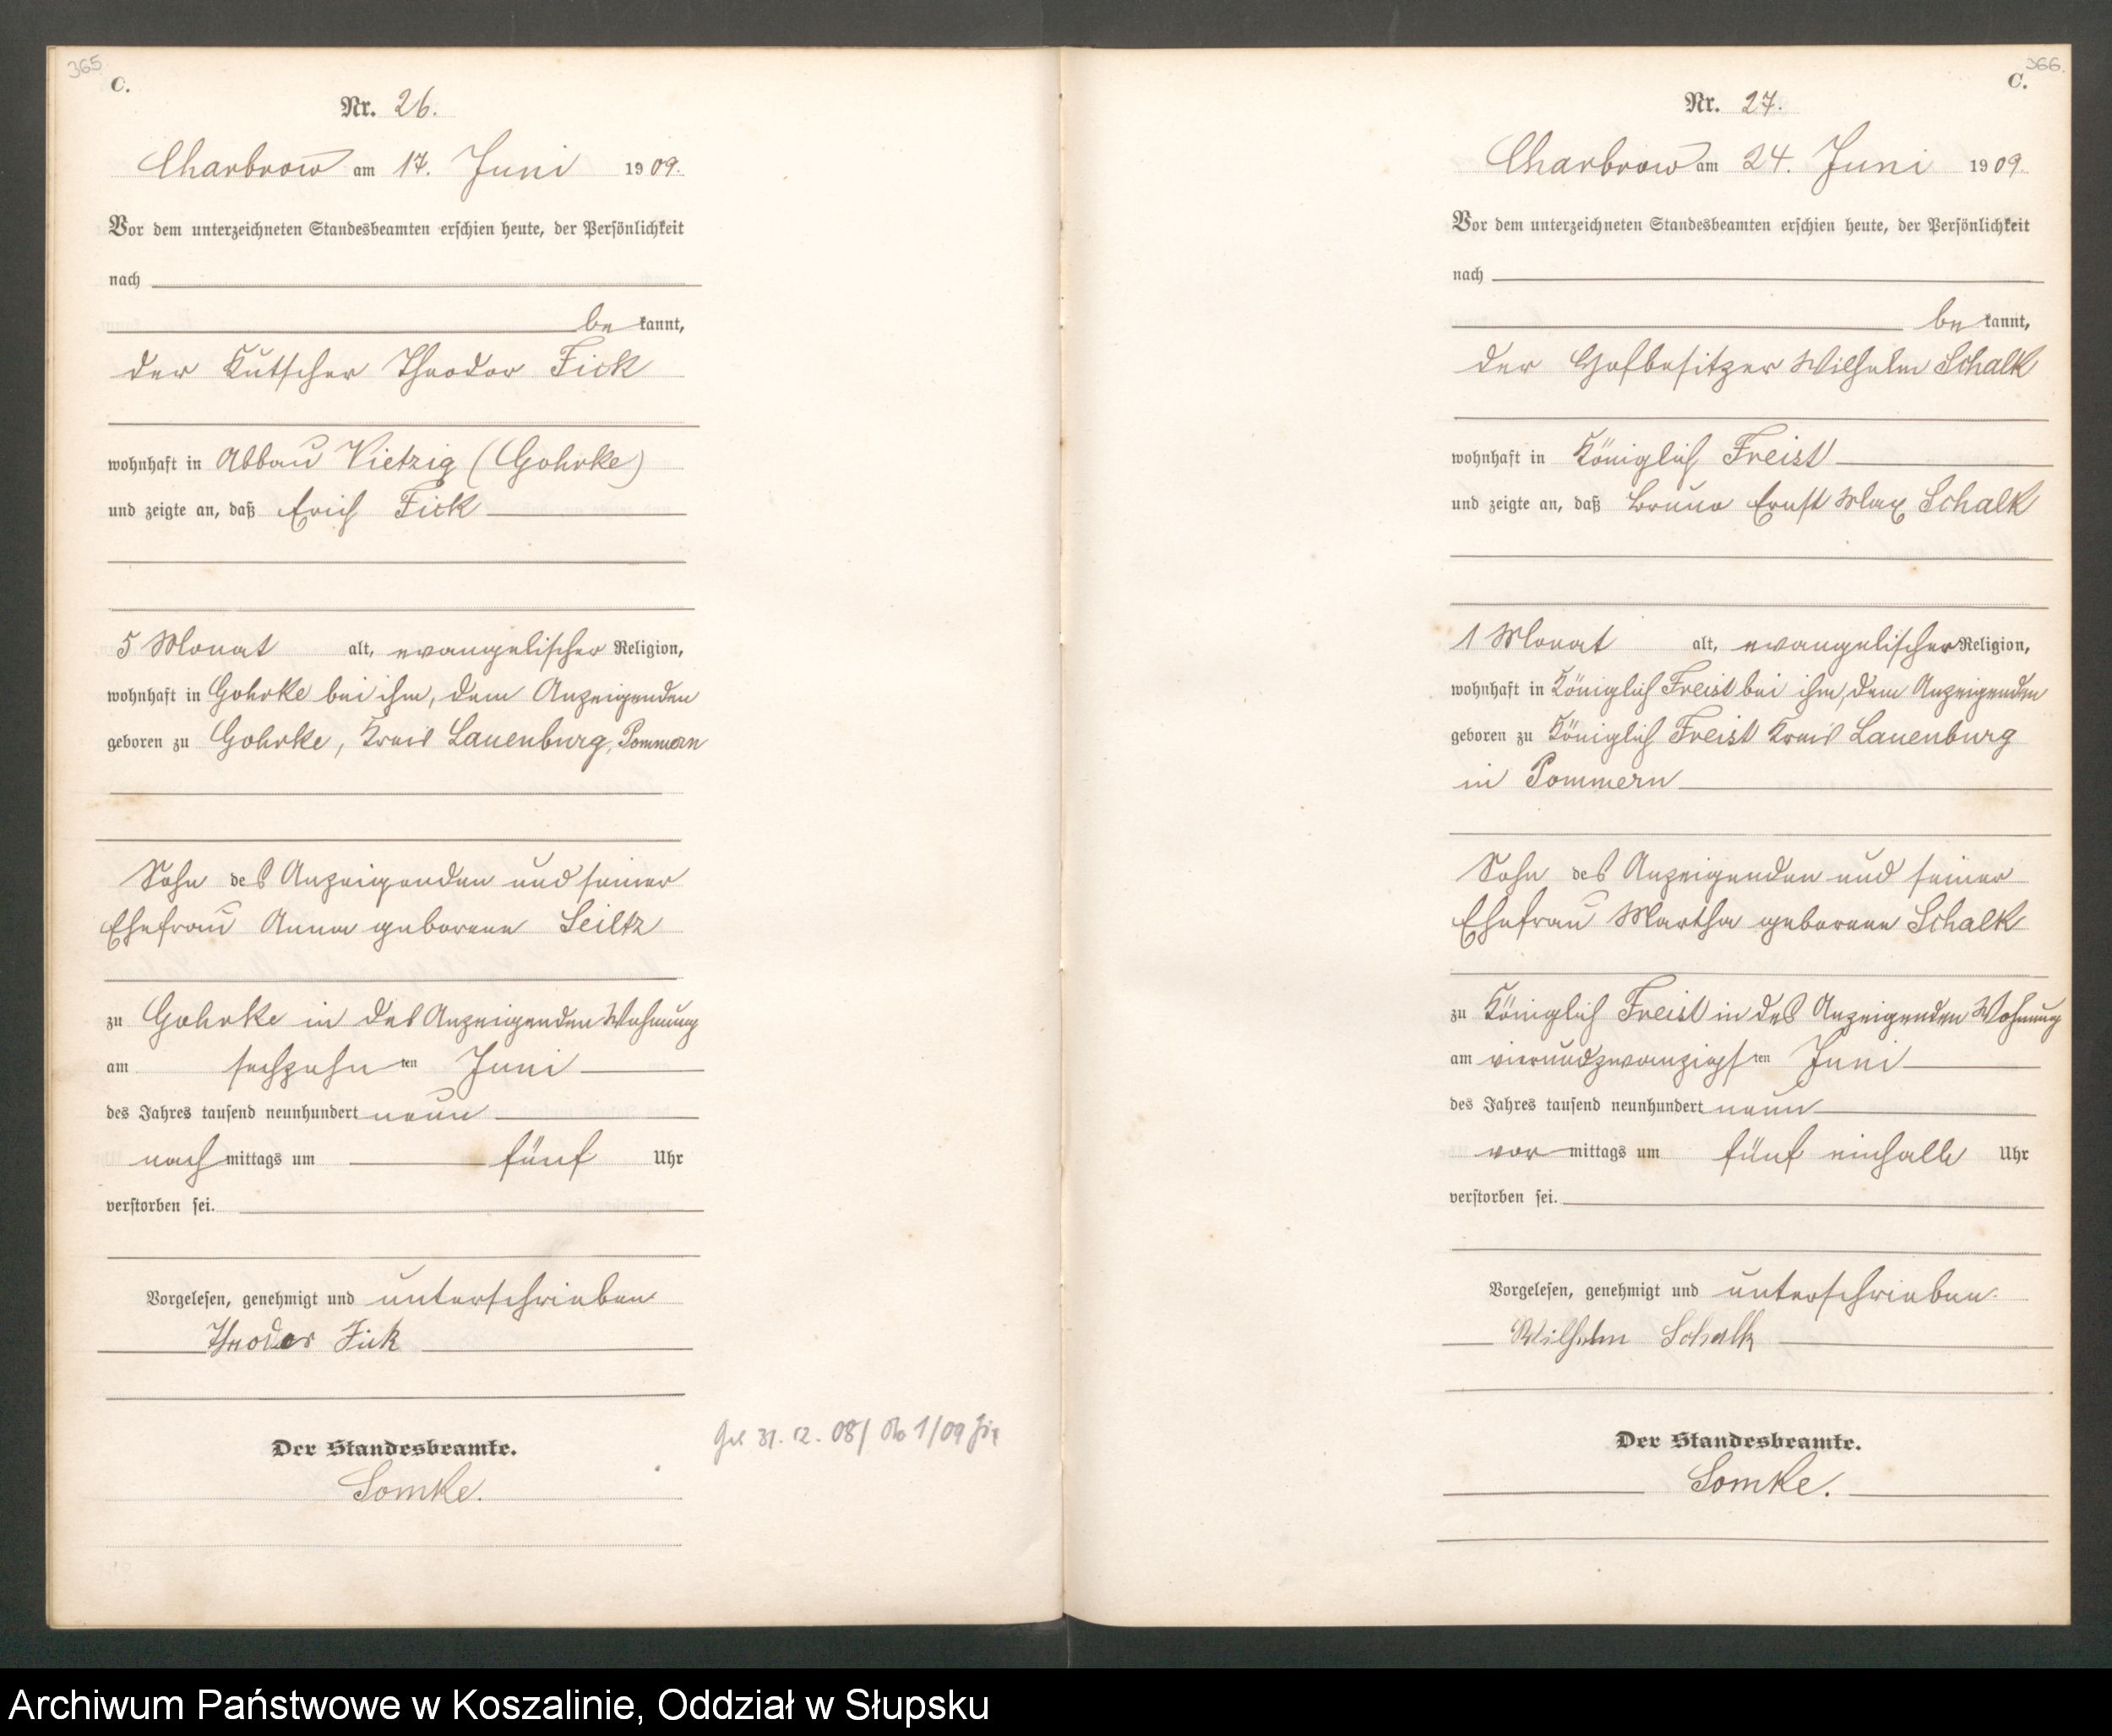 365
C.
Nr. 26.
Charbrow am 17. Juni 1909.
Vor dem unterzeichneten Standesbeamten erschien heute, der Persönlichkeit
nach
be kannt,
der Kutscher Theodor Fick
wohnhaft in Abbau Vietzig (Gohrke)
und zeigte an, daß Erich Fick
5 Monat alt, evangelischer Religion,
wohnhaft in Gohrke bei ihm, dem Anzeigenden
geboren zu Gohrke, Kreis Lauenburg, Pommern
Sohn des Anzeigenden und seiner
Ehefrau Anna geborene Seiltz
zu Gohrke in des Anzeigenden Wohnung
am sechzehn ten Juni
des Jahres tausend neunhundert neun
nach mittags um fünf Uhr
verstorben sei.
Vorgelesen, genehmigt und unterschrieben
Theodor Fick
Der Standesbeamte.
Somke.
31. 12. 08/ 1/09
366
C.
Nr. 27.
Charbrow am 24. Juni 1909.
Vor dem unterzeichneten Standesbeamten erschien heute, der Persönlichkeit
nach
be kannt,
der Hofbesitzer Wilhelm Schalk
wohnhaft in Königlich Freist
und zeigte an, daß Bruno Ernst Max Schalk
1 Monat alt, evangelischer Religion,
wohnhaft in Königlich Freist bei ihm, dem Anzeigenden
geboren zu Königlich Freist Kreis Lauenburg
in Pommern
Sohn des Anzeigenden und seiner
Ehefrau Martha geborene Schalk
zu Königlich Freist in des Anzeigenden Wohnung
am vierundzwanzigs ten Juni
des Jahres tausend neunhundert neun
vor mittags um fünf einhalb Uhr
verstorben sei.
Vorgelesen, genehmigt und unterschrieben.
Wilhelm Schalk
Der Standesbeamte.
Somke.
Archiwum Państwowe w Koszalinie, Oddział w Słupsku